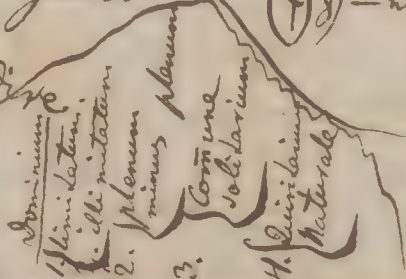 Dominium
1. limitatum
illimitatum
2. plenum
minus plenum
3. Comune
solidarium
4. Quiritarium
Naturale